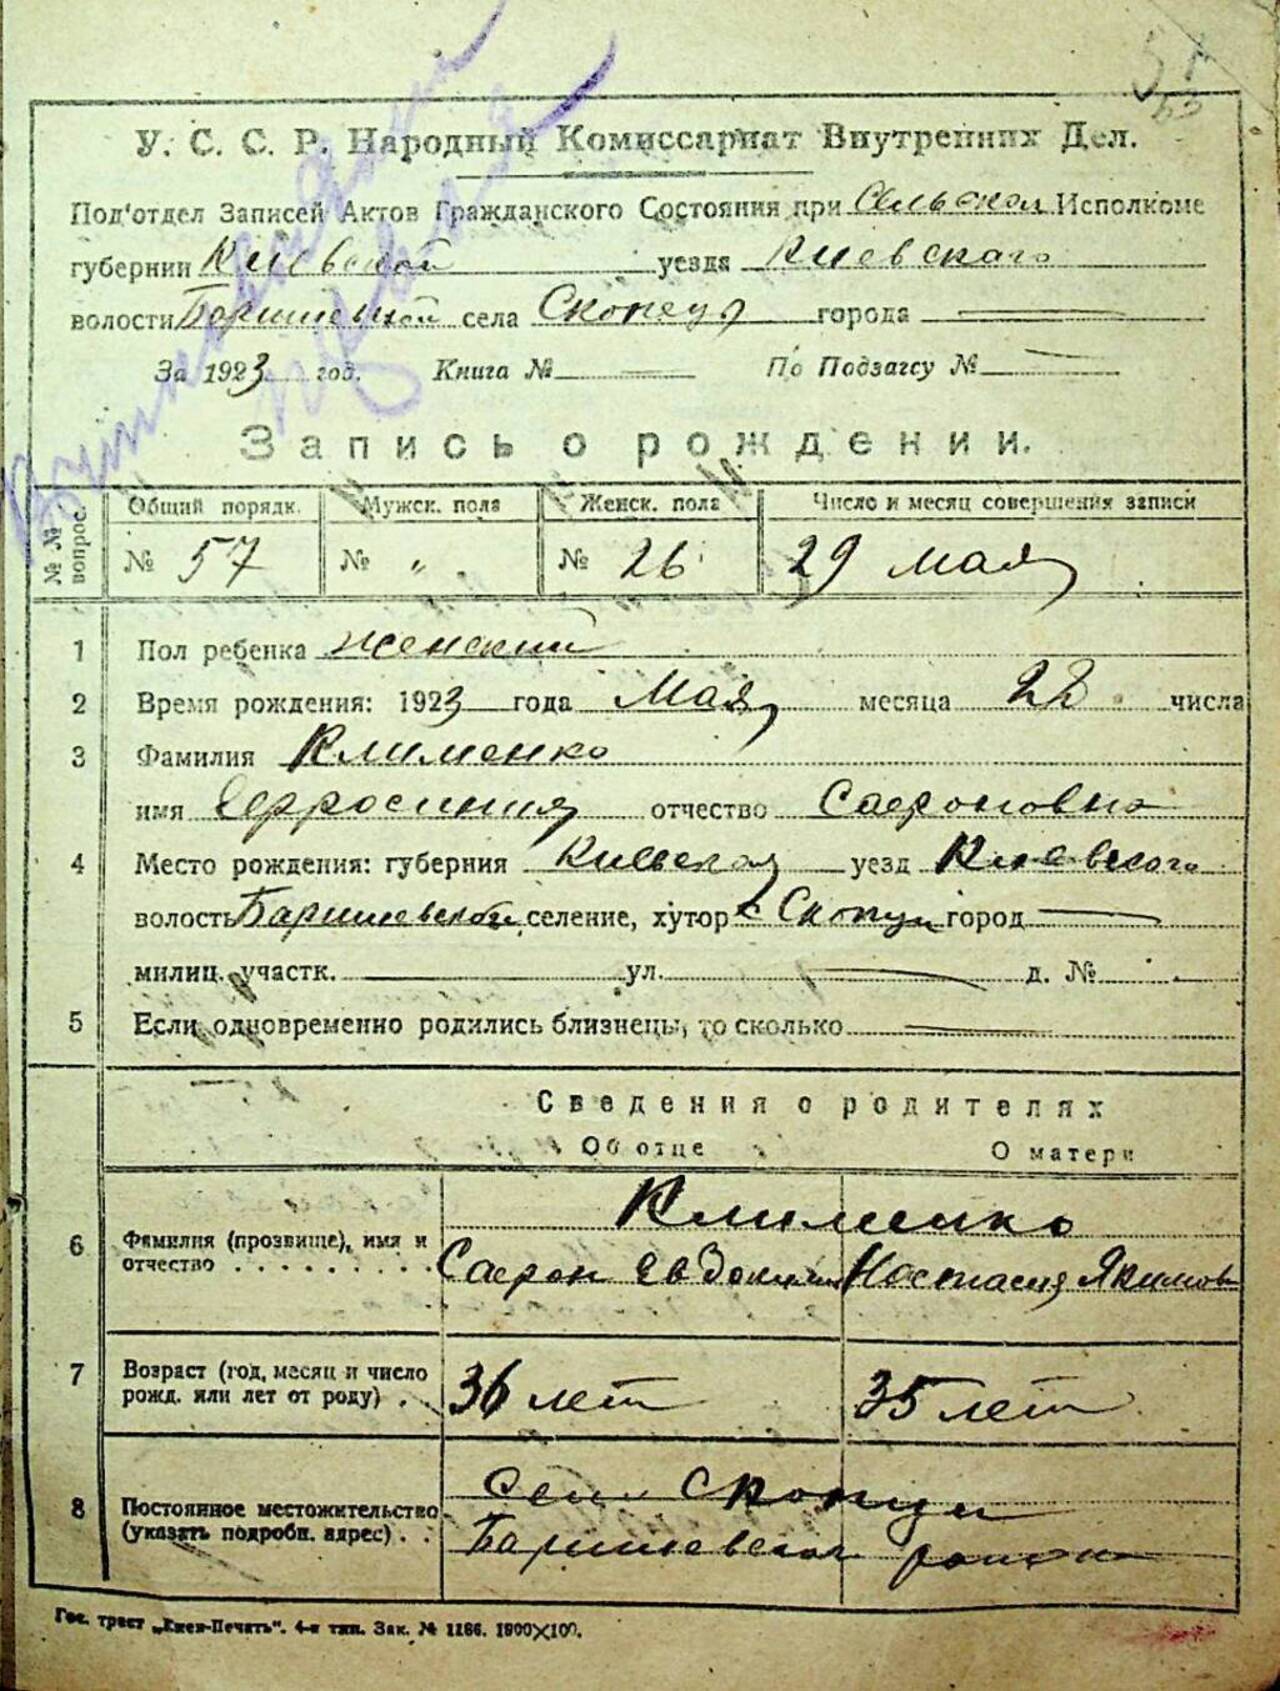 У. С. С. Р. Народный Комиссариат Внутренних Дел.
Под'отдел Записей Актов Гражданского Состояния при Сельском Исполкоме
губернии Киевской уезда Киевскаго
волости Баришевской села Скопцы города —
За 1923 год. Книга № — По Подзагсу № —
Запись о рождении.
№ № вопрос.
Общий порядк. Мужск. пола Женск. пола Число и месяц совершения записи
№ 57 № „ № 26 29 мая
1 Пол ребенка женский
2 Время рождения: 1923 года Мая месяца 22 числа
3 Фамилия Клименко
имя Ефросиния отчество Сафоновна
4 Место рождения: губерния Киевская уезд Киевского
волость Баришевской селение, хутор с Скопци город —
милиц. участк. — ул. — д. №
5 Если одновременно родились близнецы, то сколько —
Сведения о родителях
Об отце О матери
6 Фамилия (прозвище), имя и отчество Клименко
Сафон Евдоким Настасия Якимов
7 Возраст (год, месяц и число рожд. или лет от роду) 36 лет 35 лет
8 Постоянное местожительство (указать подробн. адрес) Сел. Скопци
Баришевского района
Гос. трест „Киев-Печать". 4-я тип. Зак. № 1186. 1900×100.